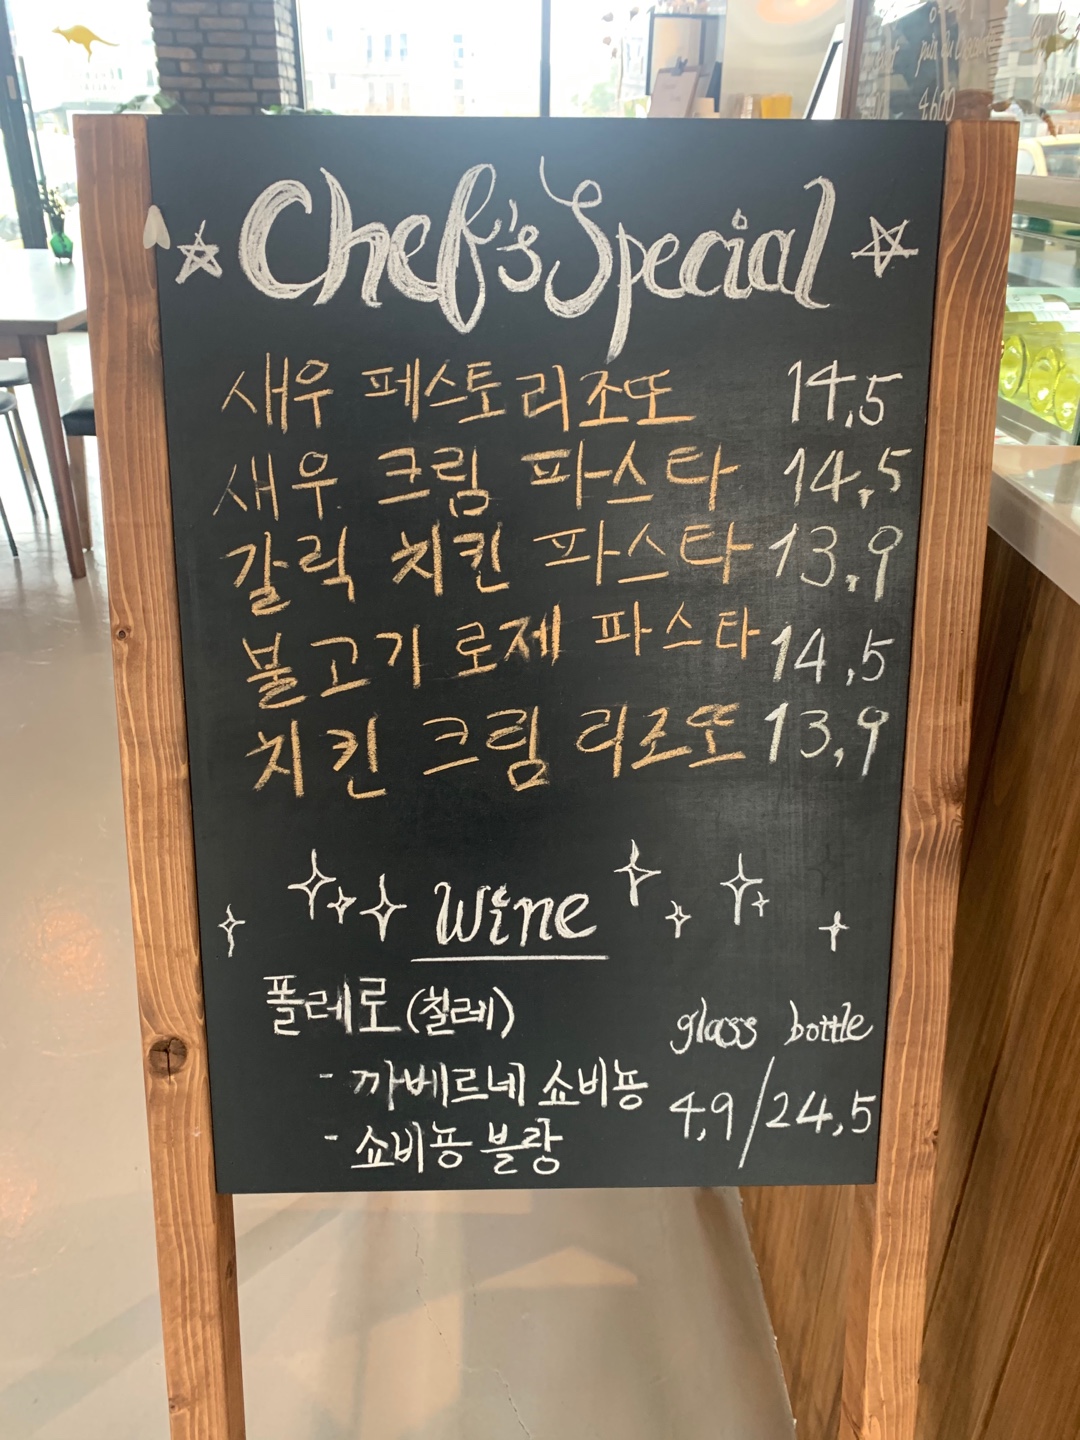 Chef's Special
새우 페스토 리조또 14,5
새우 크림 파스타 14,5
갈릭 치킨 파스타 13,9
불고기 로제 파스타 14,5
치킨 크림 리조또 13,9
Wine
폴레로 (칠레)
glass bottle
- 까베르네 쇼비뇽 4,9/24,5
- 쇼비뇽 블랑
4600